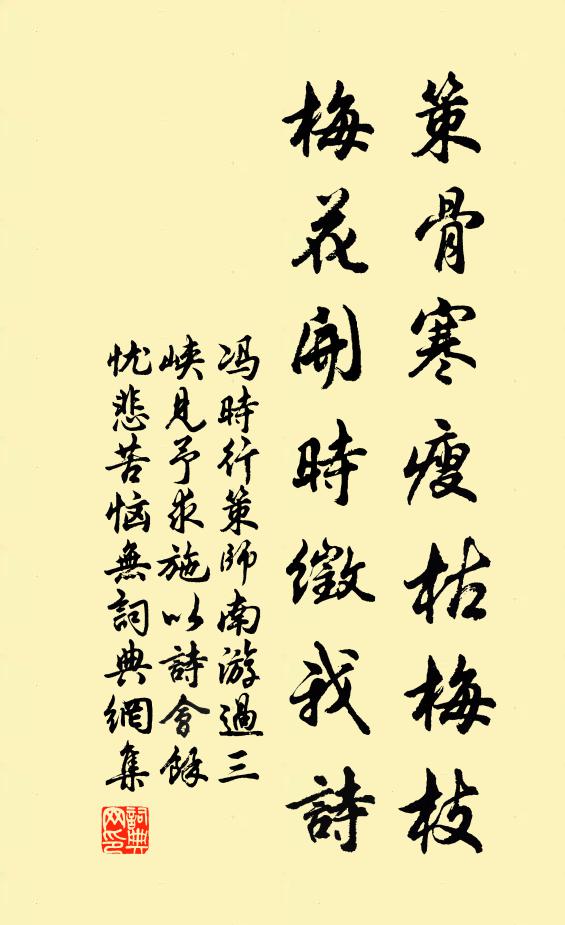 策骨寒瘦枯梅枝
梅花開時徵我詩
冯時行策師南游過三
峡見予求施以詩會餘
忧悲苦恼無詞典網集
詞典
网印